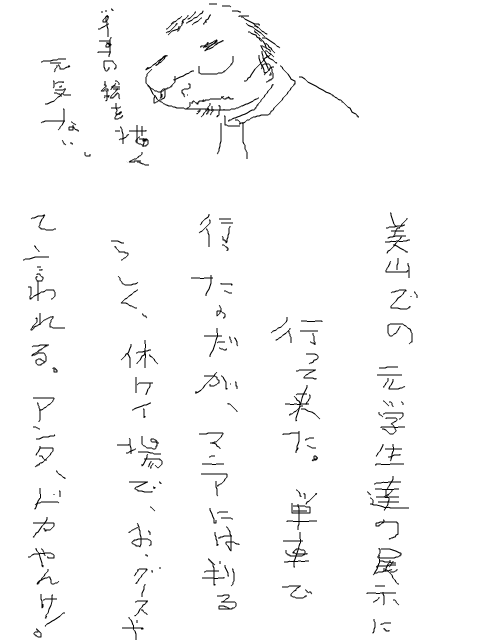 単車の絵を描ん
元気ない。
美山での元学生達の展示に
行って来た。単車で
行ったのだが、マニアには判る
らしく、休ケイ場で、お、グースや
て言われる。アンタ、ドカやんけ!。